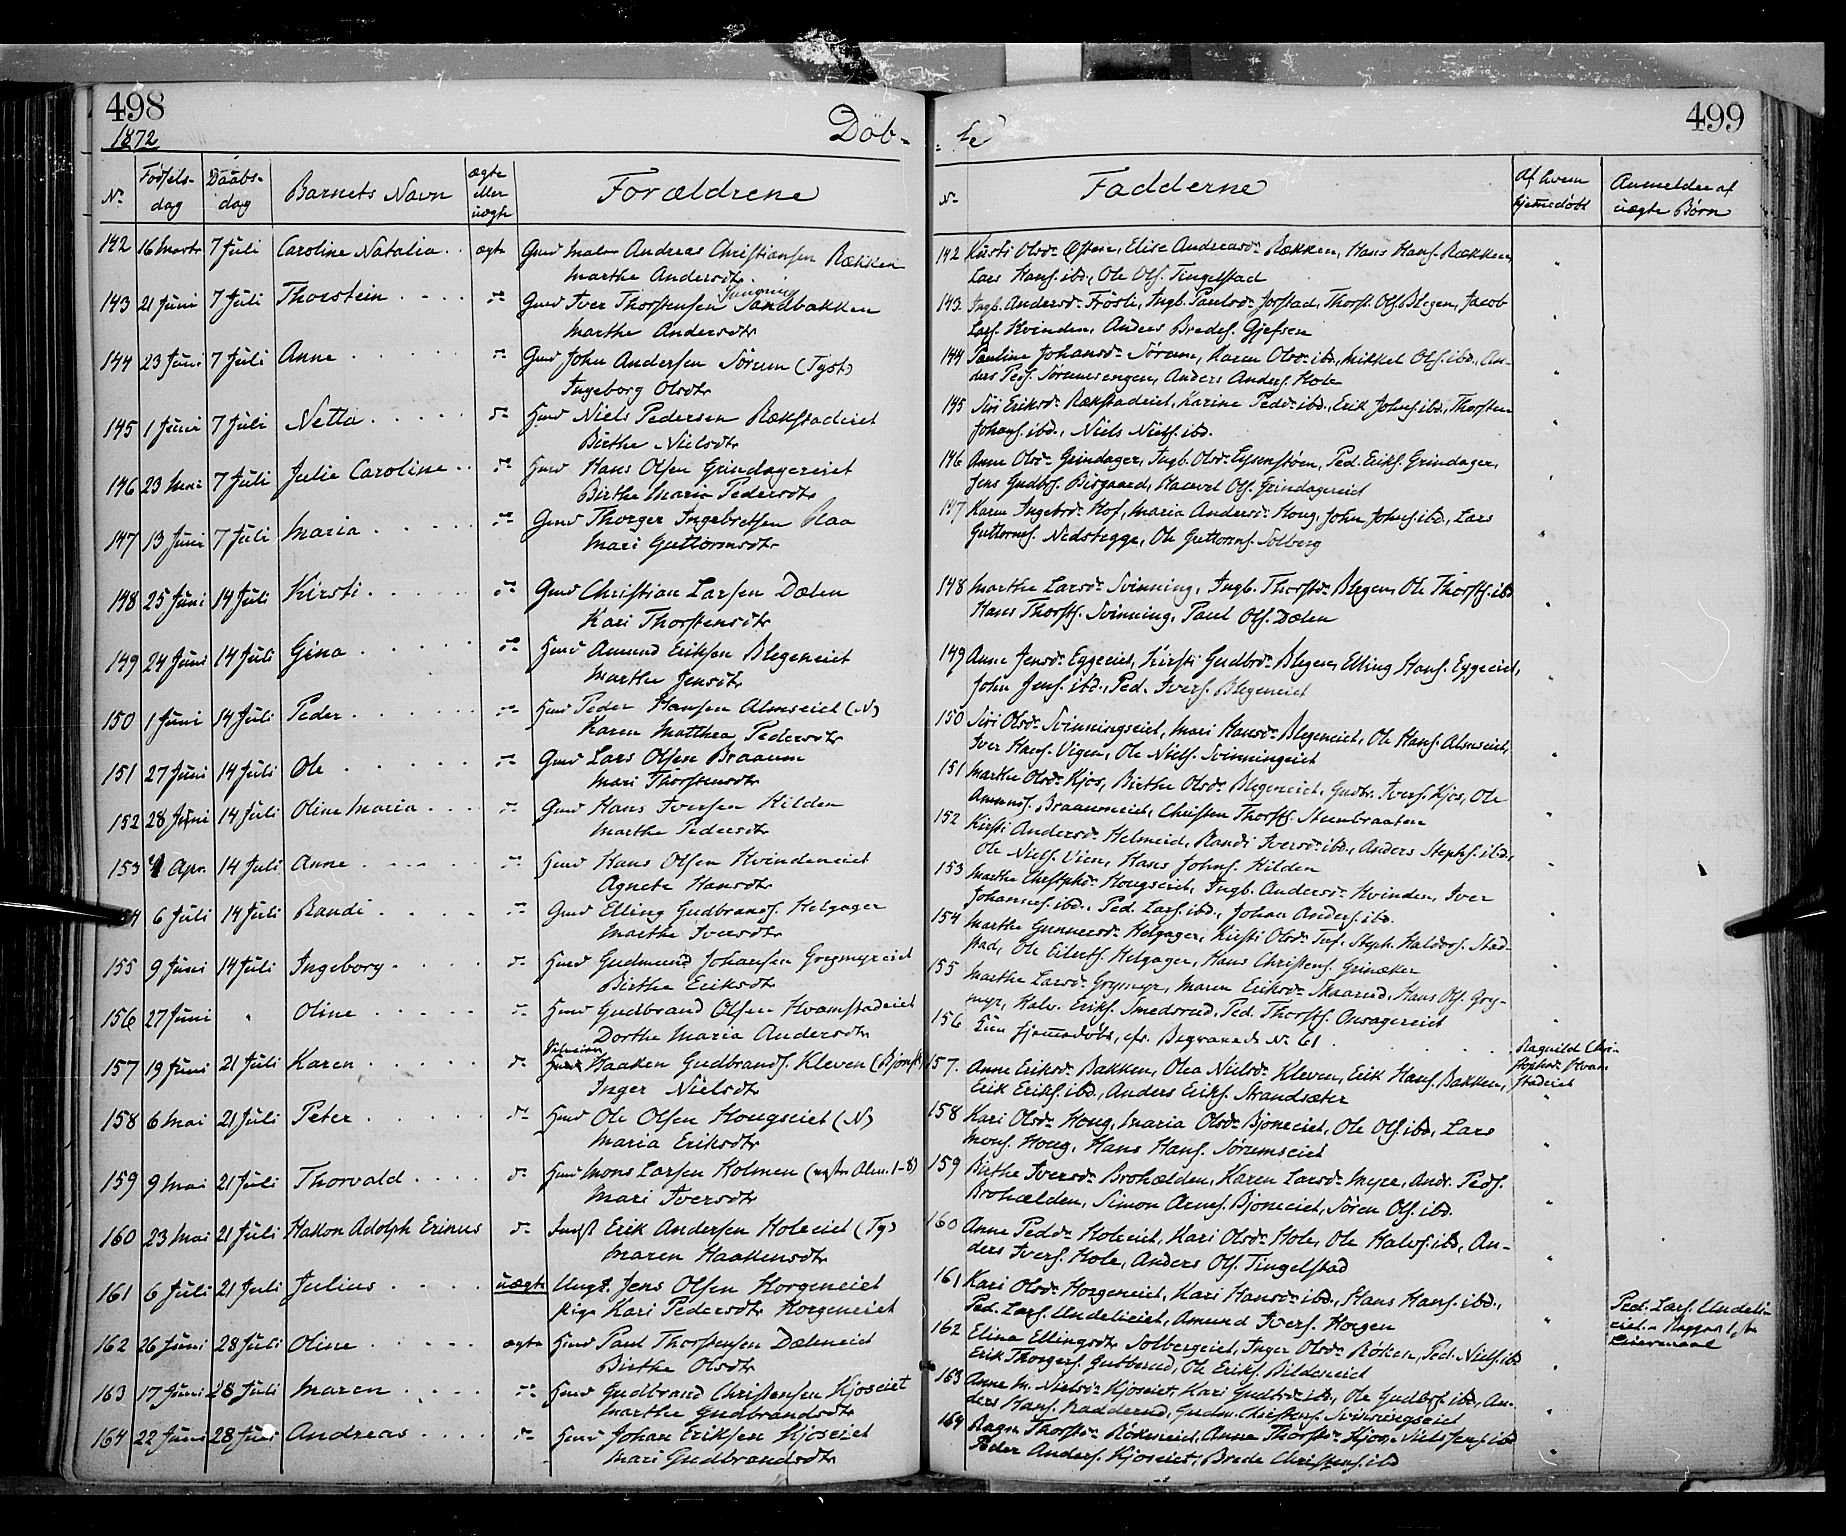 498
1872
Döb-
No
Fødsels-
dag
Daabs-
dag
Barnets Navn
ægte
eller
uægte
Forældrene
142 16 Marts 7 Juli Caroline Natalia . . ægte Gmd Andreas Christiansen Rækken
Marthe Andersdtr
143 21 Juni 7 Juli Thorstein . . . . do Gmd Iver Thorstensen Sandbakken
Marthe Andersdtr
144 23 Juni 7 Juli Anne . . . . . do Gmd John Andersen Sørum (Tgst)
Ingeborg Olsdtr
145 1 Juni 7 Juli Netta . . . . . do Hmd Niels Pedersen Rækstadeiet
Birthe Nielsdtr
146 23 Mai 7 Juli Julie Caroline . . do Hmd Hans Olsen Grindagereiet
Birthe Maria Pedersdtr
147 13 Juni 7 Juli Maria . . . . . do Gmd Thorger Ingebretsen Blaa
Mari Guttormsdtr
148 25 Juni 14 Juli Kirsti . . . . . do Gmd Christian Larsen Dælen
Kari Thorstensdtr
149 24 Juni 14 Juli Gina . . . . . do Hmd Amund Eriksen Blegeneiet
Marthe Jensdtr
150 1 Juni 14 Juli Peder . . . . . do Hmd Peder Hansen Almseiet (N)
Karen Matthea Pedersdtr
151 27 Juni 14 Juli Ole . . . . . do Gmd Lars Olsen Braaum
Mari Thorstensdtr
152 28 Juni 14 Juli Oline Maria . . . do Gmd Hans Iversen Kilden
Marthe Pedersdtr
153 4 Apr. 14 Juli Anne . . . . . do Hmd Hans Olsen Kvindeneiet
Agnete Hansdtr
154 6 Juli 14 Juli Randi . . . . do Gmd Elling Gudbrands. Helgager
Marthe Iversdtr
155 9 Juni 14 Juli Ingeborg . . . . do Hmd Gudmund Johansen Grymyreiet
Birthe Eriksdtr
156 27 Juni " Oline . . . . . do Hmd Gudbrand Olsen Hvamstadeiet
Dorthe Maria Andersdtr
157 19 Juni 21 Juli Karen . . . . . do Haaken Gudbrands. Kleven
Inger Nielsdtr
158 6 Mai 21 Juli Peter . . . . . do Hmd Ole Olsen Hougseiet (N)
Maria Eriksdtr
159 9 Mai 21 Juli Thorvald . . . . do Hmd Mons Larsen Holmen
Mari Iversdtr
160 23 Mai 21 Juli Hakon Adolph Erinus do Indst Erik Andersen Holeeiet (Tg)
Maren Haakensdtr
161 6 Juli 21 Juli Julius . . . . uægte Ungk. Jens Olsen Horgeneiet
Pige Kari Pedersdtr Horgeneiet
162 26 Juni 28 Juli Oline . . . . . ægte Hmd Paul Thorstensen Dæleneiet
Birthe Olsdtr
163 17 Juni 28 Juli Maren . . . . do Hmd Gudbrand Christensen Kjoseiet
Marthe Gudbrandsdtr
164 22 Juni 28 Juli Andreas . . . . do Hmd Johan Eriksen Kjoseiet
Mari Gudbrandsdtr
499
te
No
Fadderne
Af hvem
hjemmedøbt
Anmelder af
uægte Børn
142 Kirsti Olsdr Elise Andreasdr Rækken, Hans Hans. Rækken,
Lars Hans. ibd., Ole Ols. Tingelstad
143. Ingb. Andersdr Frøsli, Ingb. Paulsdr Jorstad, Thorst. Ols. Blegen, Jacob
Lars. Kvinden, Anders Bredes. Gjefsen
144 Pauline Johansdr Sørum, Karen Olsdr ibd., Mikkel Ols. ibd., An-
ders Peds. Sørumsengen, Anders Anders. Hole
145 Siri Eriksdr Rækstadeiet, Karine Pedr ibd., Erik Johns. ibd., Thorsten
Johans. ibd., Niels Niels. ibd.
146 Anne Olsdr Grindager, Ingb. Olsdr Ped. Eriks. Grindager,
Jens Gudbs. Bisgaard, Halvor Ols. Grindagereiet
147 Karen Ingebrdr Hof, Maria Andersdr Houg, John Johns. ibd., Lars
Guttorms. Nedstegge, Ole Guttorms. Solberg
148 Marthe Larsdr Svinning, Ingb. Thorstdr Blegen, Ole Thorsts. ibd
Hans Thorsts. Svinning, Paul Ols. Dælen
149 Anne Jensdr Eggeeiet, Kirsti Gudbdr Blegen, Elling Hans. Eggeeiet,
John Jens. ibd., Ped. Ivers. Blegeneiet
150 Siri Olsdr Svinningseiet, Mari Hansdr Blegeneiet, Ole Hans. Almseiet,
Iver Hans. Vigen, Ole Niels. Svinningeiet
151 Marthe Olsdr Kjos, Birthe Olsdr Blegeneiet, Gudbr. Ivers. Kjos, Ole
Amunds. Braaumeiet, Christen Thorsts. Stumbraaten
152 Kirsti Andersdr Helmeid, Randi Iversdr ibd., Anders Stephs. ibd.,
Ole Niels. Vien, Hans Johns. Kilden
153 Marthe Christphdr Hougseiet, Ingb. Andersdr Kvinden, Iver
Johannes. ibd., Ped. Lars. ibd., Johan Anders. ibd.
154 Marthe Gunnersdr Helgager, Kirsti Olsdr Steph. Haldors. Stad-
stad, Ole Eilerts. Helgager, Hans Christens. Grinaker
155 Marthe Larsdr Grymyr, Maren Eriksdr Skaarud, Hans Ols. Gry-
myr, Halv. Eriks. Smedsrud, Ped. Thorsts. Onsagereiet
156 Kun hjemmedøbt, cfr. Begravede No 61. . . . Ragnild Chri-
stophdr Hvam-
stadeiet
157. Anne Eriksdr Bakken, Olea Nielsdr Kleven, Erik Hans. Bakken,
Erik Eriks. ibd., Anders Eriks. Strandsæter
158 Kari Olsdr Houg, Maria Olsdr Bjoneeiet, Ole Ols. ibd., Lars
Mons. Houg, Hans Hans. Sørumseiet
159 Birthe Iversdr Brohælden, Karen Larsdr Myre, Andr. Peds.
Brohælden, Simon Arnes. Bjoneeiet, Søren Ols. ibd.
160 Anne Pedsdr Holeeiet, Kari Olsdr Hole, Ole Halvs. ibd., An-
ders Ivers. Hole, Anders Ols. Tingelstad
161 Kari Olsdr Horgeneiet, Kari Hansdr ibd., Hans Hans. ibd.,
Ped. Lars. Undelieiet, Amund Ivers. Horgen
Ped. Lars. Undeli-
eiet
162 Elina Ellingsdr Solbergeiet, Inger Olsdr Røken, Ped. Niels. ibd
Erik Thorgers. Gutterud, Ole Eriks. Bildeneiet
163 Anne M. Nielsdr Kjoseiet, Kari Gudbdr ibd., Ole Gudbs. ibd., An-
ders Hans. Raddernd, Gudm. Christens. Svinningseiet
164 Ragn. Thorstdr Røkeneiet, Anne Thorstdr Kjos, Niels Jens. ibd
Peder Anders. Kjoseiet, Brede Christens. ibd